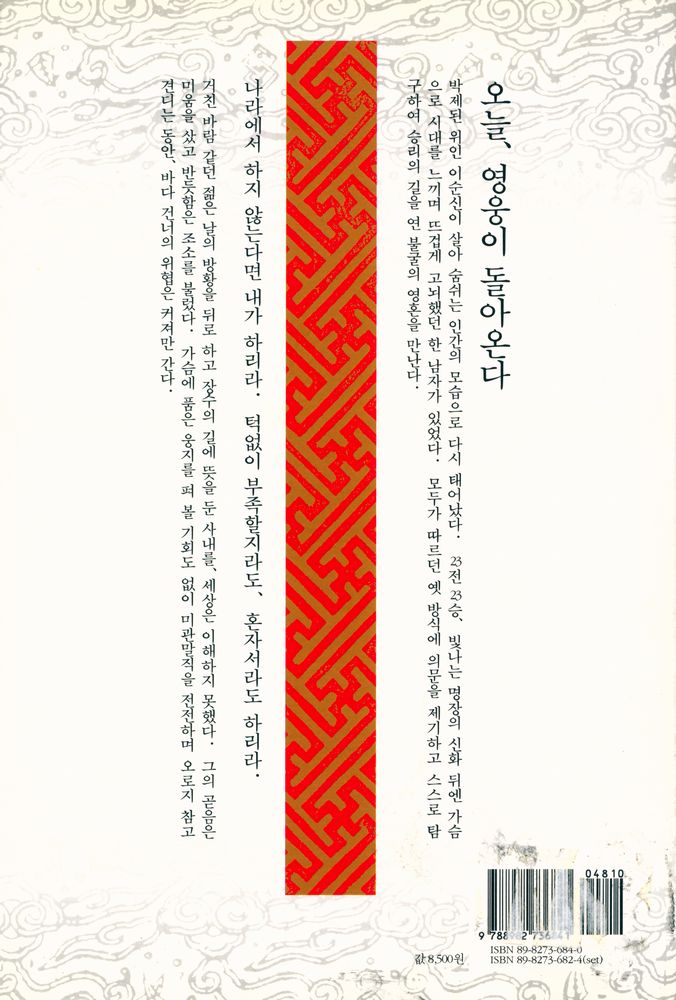 오늘, 영웅이 돌아온다
박제된 위인 이순신이 살아 숨쉬는 인간의 모습으로 다시 태어났다. 23전 23승, 빛나는 명장의 신화 뒤엔 가슴
으로 시대를 느끼며 뜨겁게 고뇌했던 한 남자가 있었다. 모두가 따르던 옛 방식에 의문을 제기하고 스스로 탐
구하여 승리의 길을 연 불굴의 영혼을 만난다.
나라에서 하지 않는다면 내가 하리라. 턱없이 부족할지라도, 혼자서라도 하리라.
거친 바람 같던 젊은 날의 방황을 뒤로 하고 장수의 길에 뜻을 둔 사내를, 세상은 이해하지 못했다. 그의 곧음은
미움을 샀고 반듯함은 조소를 불렀다. 가슴에 품은 웅지를 펴 볼 기회도 없이 미관말직을 전전하며 오로지 참고
견디는 동안, 바다 건너의 위협은 커져만 간다.
04810
ISBN 89-8273-684-0
ISBN 89-8273-682-4(set)
값 8,500원